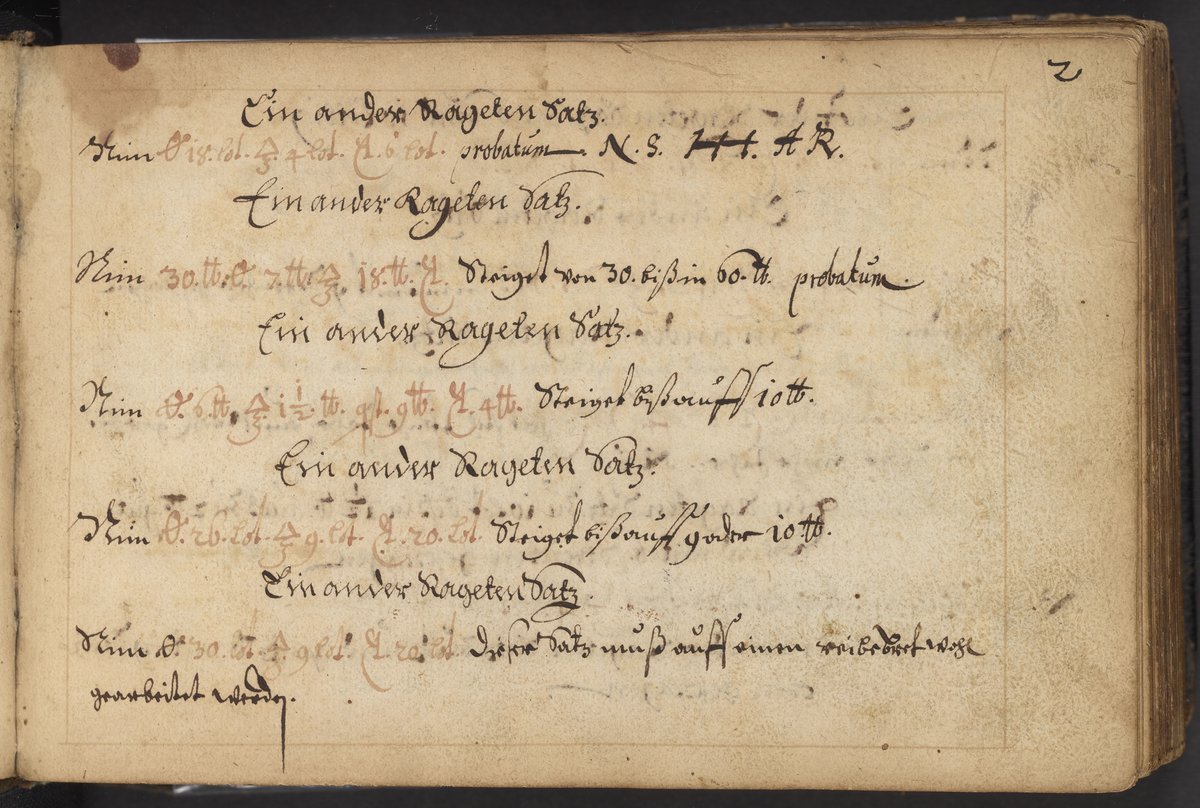 2
Ein ander Rageten Satz.
Nim 18. lot. 4 lot. 6 lot. probatum. N. S. A R.
Ein ander Rageten Satz.
Nim 30. ℔. 7 ℔. 18. ℔. Steiget von 30. biß in 60. ℔. probatum.
Ein ander Rageten Satz.
Nim 6 ℔. 1 1/2 ℔. 9 ℔. 4 ℔. Steiget biß auff 10 ℔.
Ein ander Rageten Satz.
Nim 26. lot. 9. lot. 20. lot. Steiget biß auff 9 oder 10 ℔.
Ein ander Rageten Satz.
Nim 30. lot. 9 lot. 20 lot. dieser Satz muß auff einen reibebret wohl
gearbeitet werden.